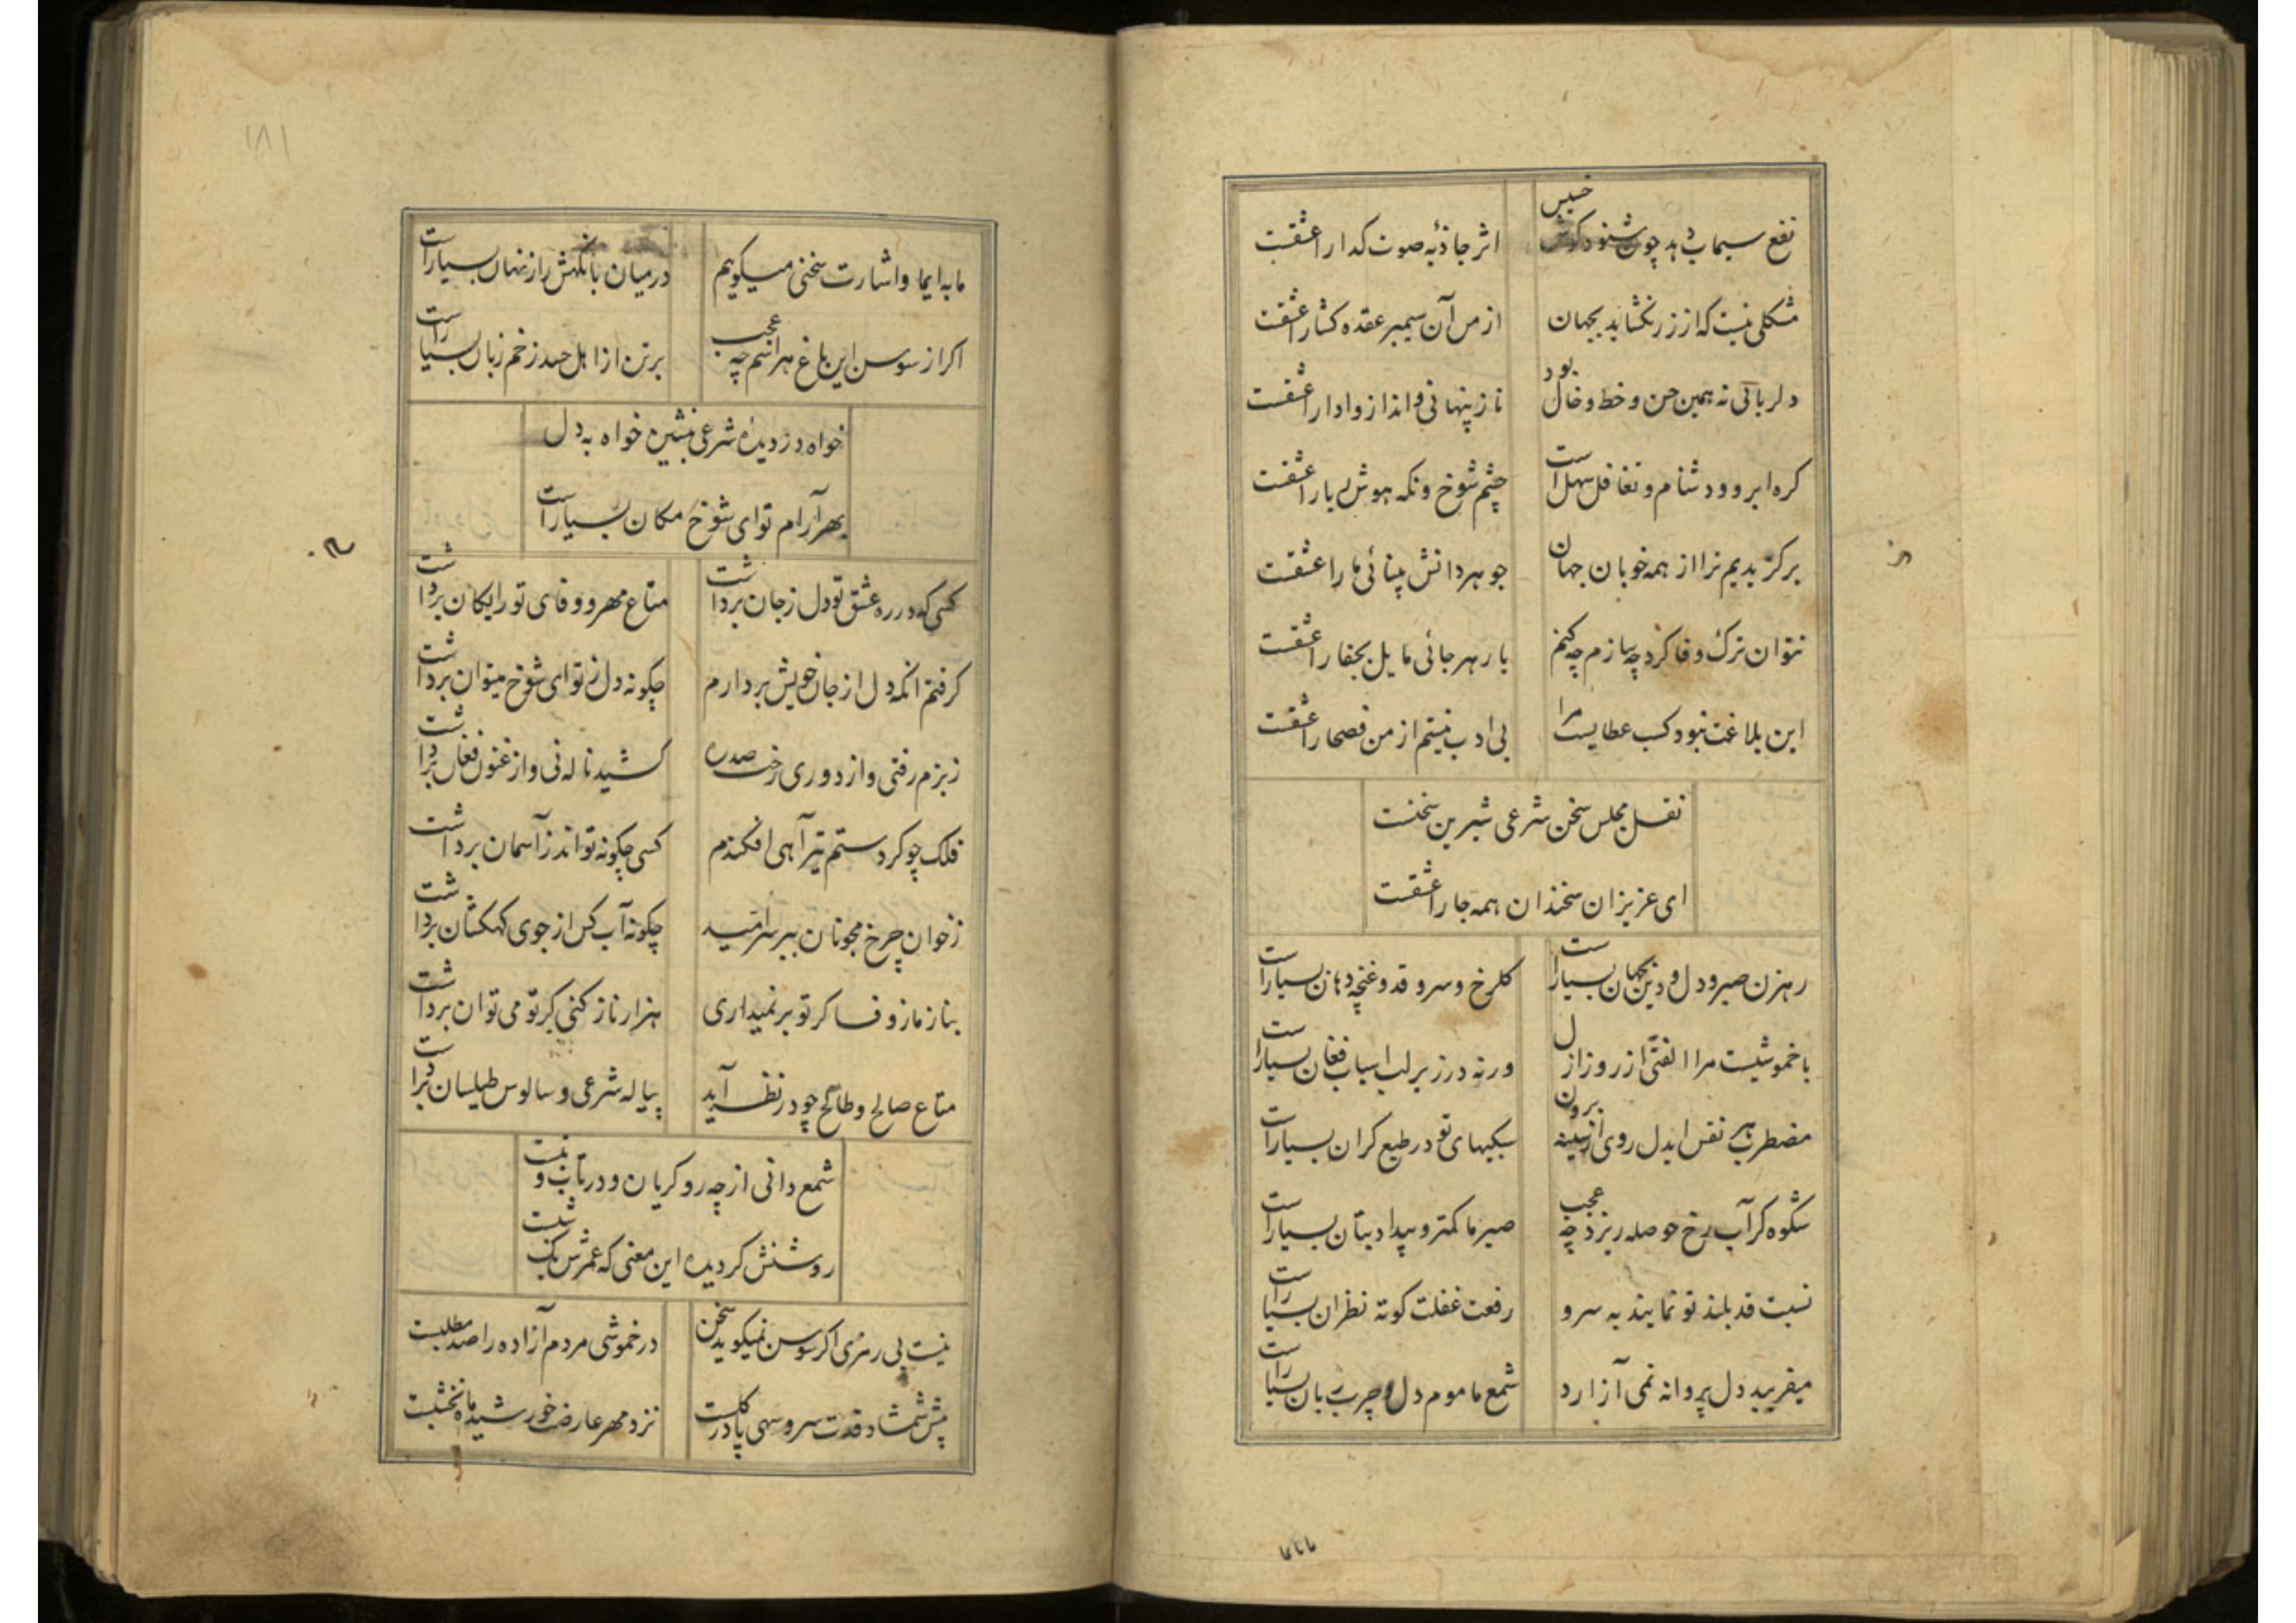 نفع سیماب دهد چون شنود کوش خسیس
اثر جاذبه صوت کدا را عشقت
مشکلی نیست که از زر نکشاید بجهان
از من آن سیمبر عقده کشا را عشقت
دلربائی نه همین حسن و خط و خال بود
ناز پنهانی و انداز و ادا را عشقت
کره ابرو و دشنام و تغافل سهل است
چشم شوخ و نکه هوش ربا را عشقت
برکزیدیم ترا از همه خوبان جهان
جوهر دانش بینائی ما را عشقت
نتوان ترک وفا کرد چه سازم چه کنم
یار هر جائی مایل بجفا را عشقت
این بلاغت نبود کسب عطایست مرا
بی ادب نیستم از من فصحا را عشقت
نقل مجلس سخن شرعی شیرین سخنست
ای عزیزان سخندان همه جا را عشقت
رهزن صبر و دل و دین بجهان بسیار است
کلرخ و سرو قد و غنچه دهان بسیار است
با خموشیست مرا الفتی از روز ازل
ورنه در زیر لب اسباب فغان بسیار است
مضطرب هر نفس ایدل روی از سینه برون
سبکیهای تو در طبع کران بسیار است
شکوه کر آب رخ حوصله ریزد چه عجب
صبر ما کمتر و بیداد بتان بسیار است
نسبت قد بلند تو نمایند به سرو
رفعت غفلت کوته نظران بسیار است
میفریبد دل پروانه نمی آزارد
شمع ما موم دل و چرب زبان بسیار است
۱۸۱
ما به ایما و اشارت سخنی میکویم
در میان با نکهش راز نهان بسیار است
اکر از سوسن این باغ هراسم چه عجب
بر تن از اهل حسد زخم زبان بسیار است
خواه در دیده شرعی بنشین خواه به دل
بهر آرام تو ای شوخ مکان بسیار است
کسی که در ره عشق تو دل ز جان برداشت
متاع مهر و وفای تو رایکان برداشت
کرفتم انکه دل از جان خویش بردارم
چکونه دل ز تو ای شوخ میتوان برداشت
ز بزم رفتی و از دوری رخت صد ره
کشید ناله نی و ارغنون فغان برداشت
فلک چو کرد ستم تیر آهی افکندم
کسی چکونه تواند ز آسمان برداشت
ز خوان چرخ مجو نان ببر سر امید
چکونه آب کس از جوی کهکشان برداشت
بناز ما ز وفا کر تو بر نمیداری
هزار ناز کنی کر تو می توان برداشت
متاع صالح و طالح چو در نظر آید
پیاله شرعی و سالوس طیلسان برداشت
شمع دانی از چه رو کریان و در تاب و تبست
روشنش کردیده این معنی که عمرش یک شبست
نیست بی رمزی اکر سوسن نمیکوید سخن
در خموشی مردم آزاده را صد مطلبست
پیش شمشاد قدت سرو سهی پا در کلست
نزد مهر عارضت خورشید ماه نخشبست